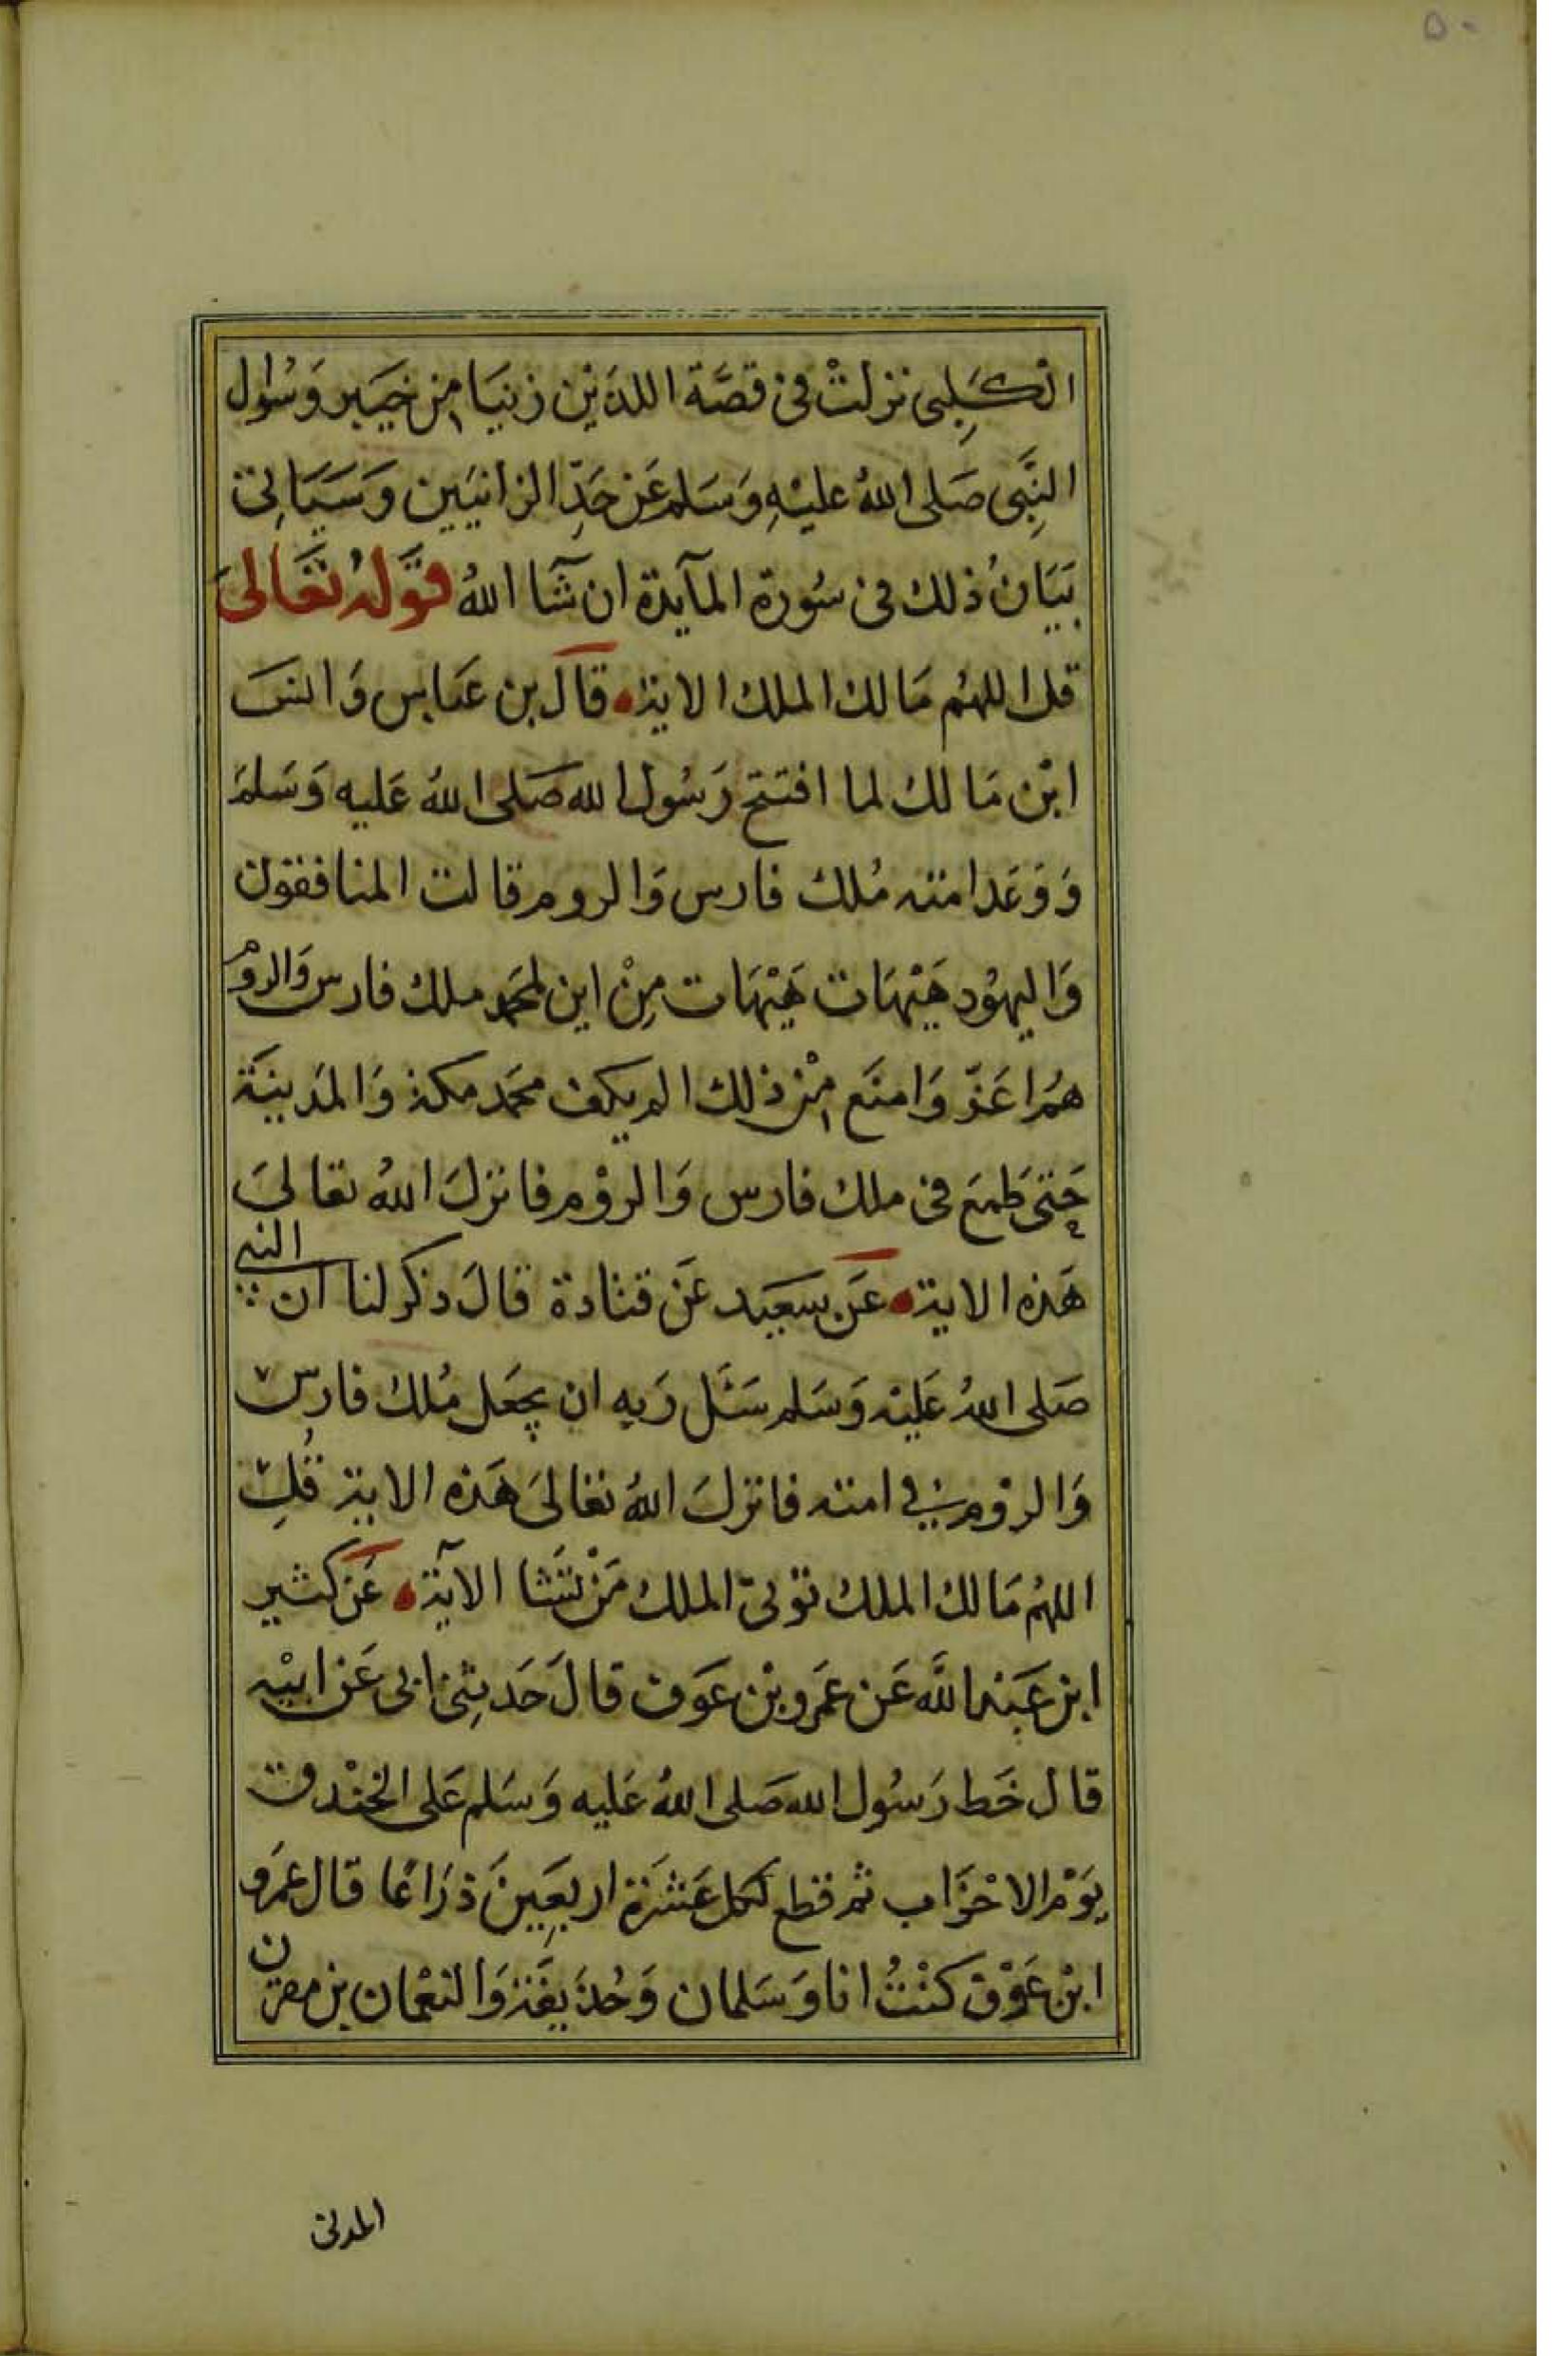 ٥٠
الكَلبِى نزلتْ فى قصَّة اللذين زنيَا من خيبَر وَسُوال
النبِّى صَلى اللهُ عليْهِ وَسَلم عَن حَدِّ الزانيَين وَسَيَاتى
بَيَانُ ذلك فى سُورة المآيدة ان شآ اللهُ قوَله تعَالىَ
قل اللهُم مَالك الملك الاية قالَ بن عبَاس وَانسَ
ابْن مَالك لما افتتح رَسُول الله صَلى اللهُ عَليه وَسَلمَ
وَوَعَد امته مُلك فارس وَالروم قالت المنافقون
وَاليهُود هَيْهَات هَيْهَات مِنْ اين لمحَمد ملك فارس وَالروْم
هُم اعَزّ وَامنَع منْ ذلك الم يكف محَمد مكة وَالمَدينَة
حَتى طَمعَ فى ملك فارس وَالروْم فانزلَ اللهُ تعَالىَ
هَذه الاية عَن سَعيَد عَن قتادة قالَ ذكر لنا ان النبى
صَلى اللهُ عَليْه وَسَلم سَئَل رَبه ان يجعَل مُلك فارس
وَالروْم فى امته فانزلَ اللهُ تعَالىَ هَذه الاية قُلِ
اللهُم مَالك الملك توْتى الملك مَنْ تشَا الآية عَن كثير
ابن عَبْد اللَّه عَن عَمَرو بْن عَوَف قالَ حَدثِنى ابى عَن ابيْه
قال خَط رَسُول الله صَلى اللهُ عَليه وَسَلم عَلى الخنْدق
يَوْم الاحْزَاب ثم قطع لكل عَشرَة اربعِينَ ذرَاعًا قال عَمرَو
ابْن عَوْف كنْتُ انا وَسَلمان وَحُذَيفَة وَالنعْمان بن مقرن
المدنى